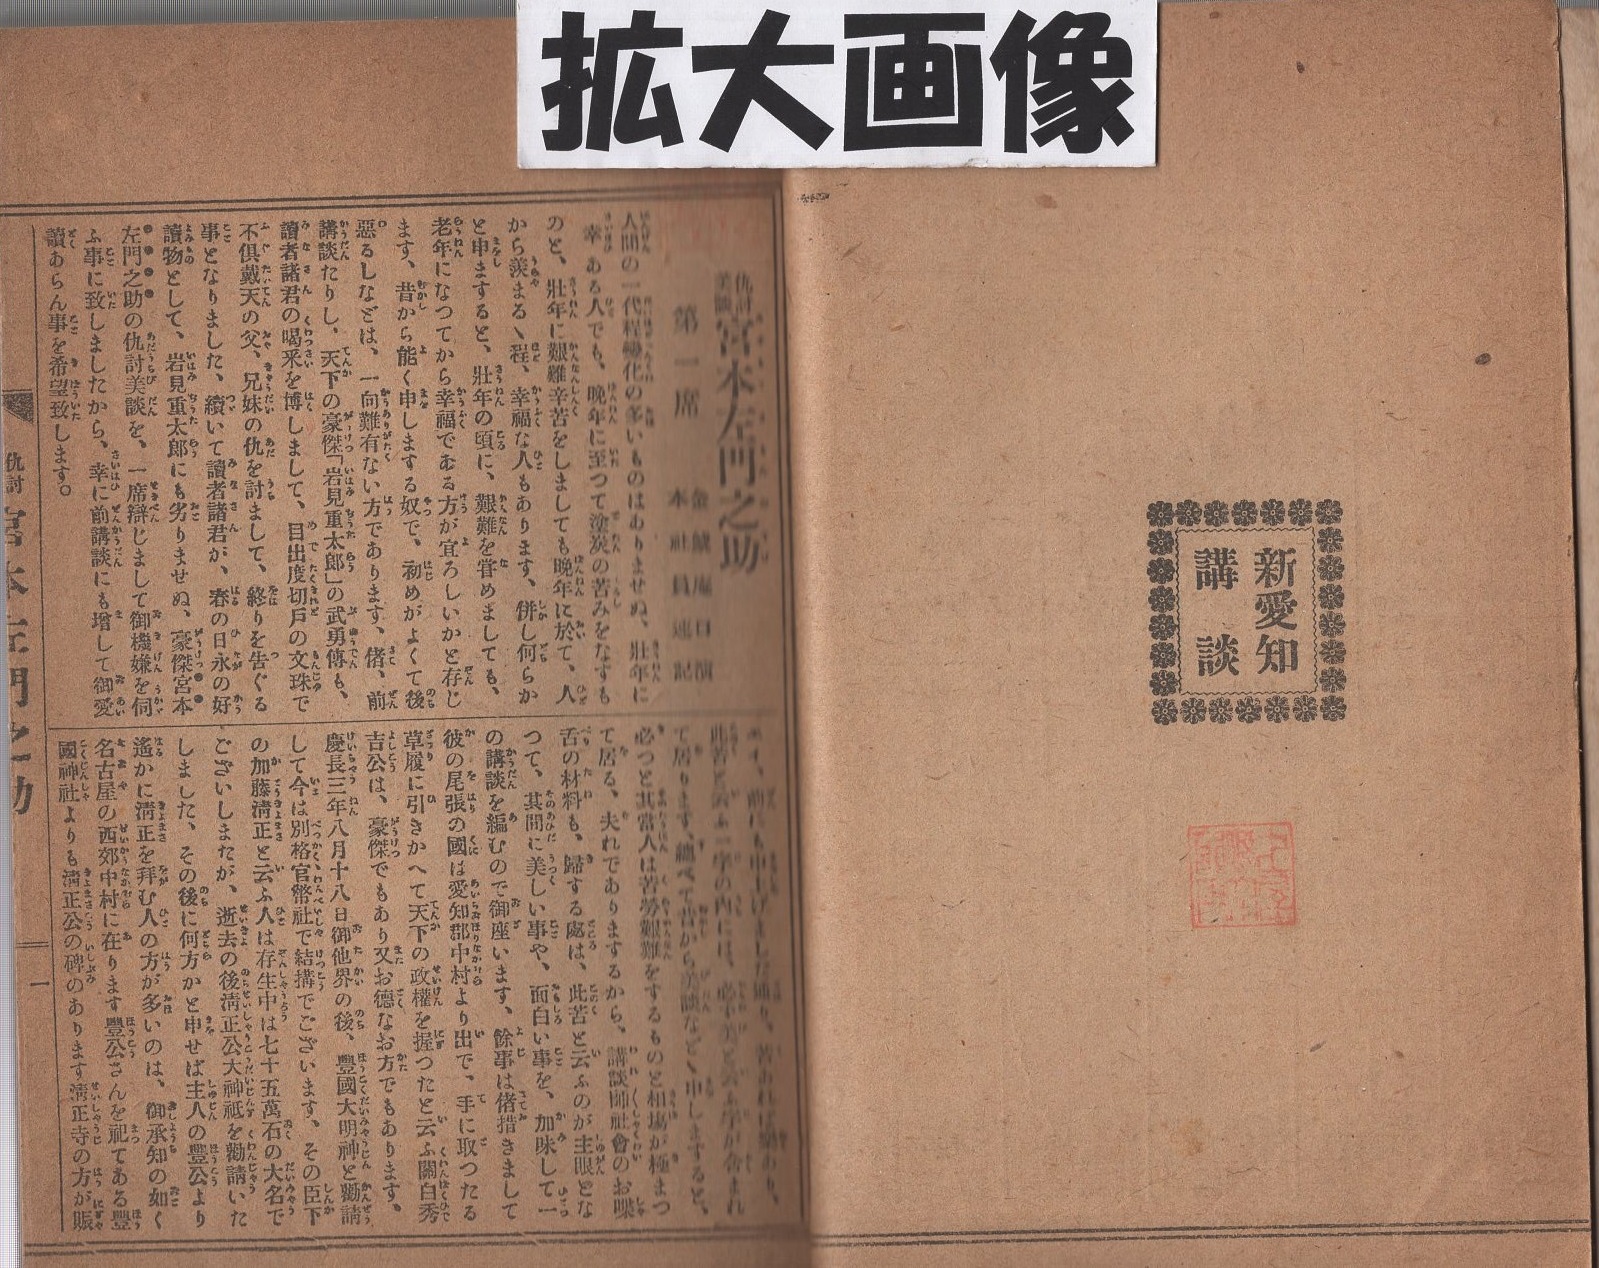 拡大画像
新愛知
講談
仇討
美談
宮本左門之助
第一席
本社員速記
人間の一代程變化の多いものはありませぬ、壯年に
幸ある人でも、晩年に至つて塗炭の苦みをなすも
のと、壯年に艱難辛苦をしましても晩年に於て、人
から羨まるゝ程、幸福な人もあります、併し何らか
と申ますると、壯年の頃に、艱難を甞めましても、
老年になつてから幸福である方が宜ろしいかと存じ
ます、昔から能く申しまする奴で、初めがよくて後
惡るしなどは、一向難有ない方であります、偖、前
講談たりし、天下の豪傑「岩見重太郎」の武勇傳も、
讀者諸君の喝采を博しまして、目出度切戸の文珠で
不倶戴天の父、兄妹の仇を討まして、終りを告ぐる
事となりました、續いて讀者諸君が、春の日永の好
讀物として、岩見重太郎にも劣りませぬ、豪傑宮本
左門之助の仇討美談を、一席辯じまして御機嫌を伺
ふ事に致しましたから、幸に前講談にも增して御愛
讀あらん事を希望致します。
て居ります、總べて昔から美談などゝ申しますると、
必つと其當人は苦勞艱難をするものと相塲が極まつ
て居る、夫れでありまするから、講談師社會のお喋
舌の材料も、歸する處は、此苦と云ふのが主眼とな
つて、其間に美しい事や、面白い事を、加味して一
の講談を編むので御座います、餘事は偖措きまして
彼の尾張の國は愛知郡中村より出で、手に取つたる
草履に引きかへて天下の政權を握つたと云ふ關白秀
吉公は、豪傑でもあり又お德なお方でもあります、
慶長三年八月十八日御他界の後、豐國大明神と勸請
して今は別格官幣社で結搆でございます、その臣下
の加藤淸正と云ふ人は存生中は七十五萬石の大名で
ございしまたが、逝去の後淸正公大神祇を勸請いた
しました、その後に何方かと申せば主人の豐公より
遙かに淸正を拜む人の方が多いのは、御承知の如く
名古屋の西郊中村に在ります豐公さんを祀てある豐
國神社よりも淸正公の碑のあります淸正寺の方が賑
仇討 宮本左門之助
一